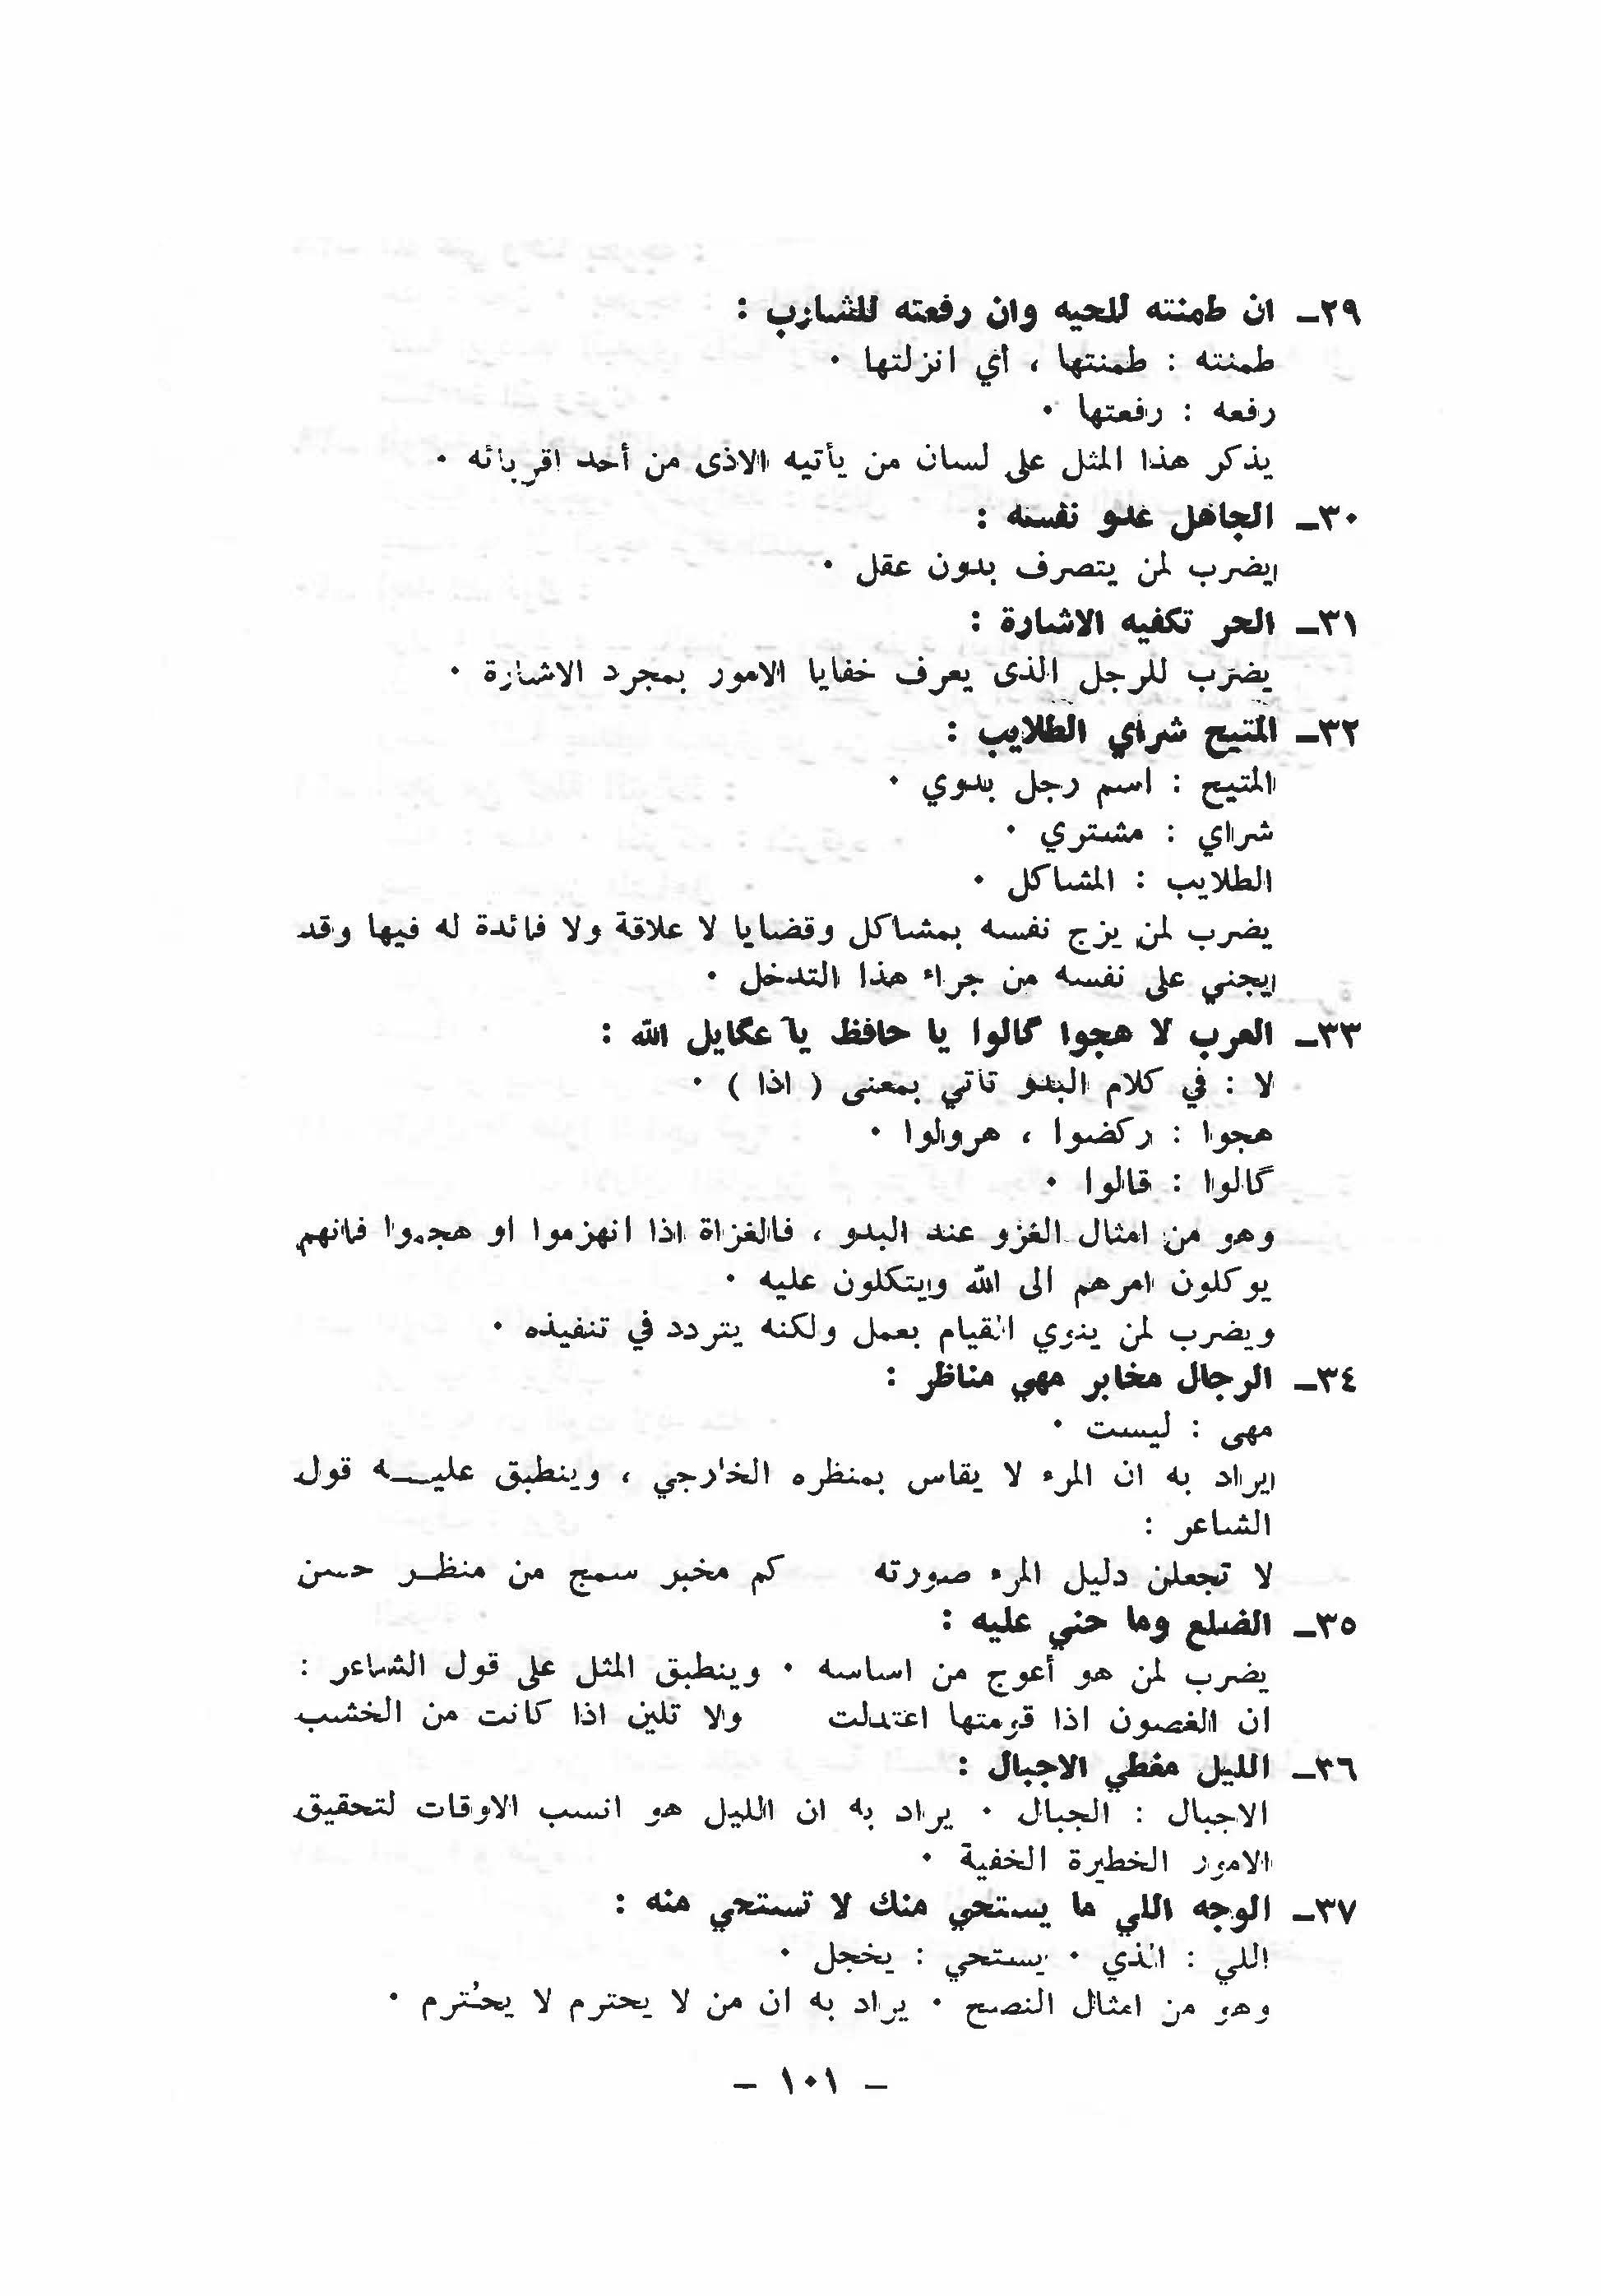 ٢٩ـ ان طمنته للحيه وان رفعته للشازب :
طمنته : طمنتها ، أي انزلتها ٠
رفعه : رفعتها ٠
يذكر هذا المثل على لسان من يأتيه الاذى من أحد اقربائه ٠
٣٠ـ الجاهل عدو نفسه :
يضرب لمن يتصرف بدون عقل ٠
٣١ـ الحر تكفيه الاشارة :
يضرب للرجل الذى يعرف خفايا الامور بمجرد الاشارة ٠
٣٢ـ المتيح شراي الطلايب :
المتيح : اسم رجل بدوي ٠
شراي : مشتري ٠
الطلايب : المشاكل ٠
يضرب لمن يزج نفسه بمشاكل وقضايا لا علاقة ولا فائدة له فيها وقد
يجني على نفسه من جراء هذا التدخل ٠
٣٣ـ العرب لا هجوا گالوا يا حافظ يا عگايل الله :
لا : في كلام البدو تأتي بمعنى ( اذا ) ٠
هجوا : ركضوا ، هرولوا ٠
گالوا : قالوا ٠
وهو من امثال الغزو عند البدو ، فالغزاة اذا انهزموا او هجموا فانهم
يوكلون امرهم الى الله ويتكلون عليه ٠
ويضرب لمن ينوي القيام بعمل ولكنه يتردد في تنفيذه ٠
٣٤ـ الرجال مخابر مهي مناظر :
مهي : ليست ٠
يراد به ان المرء لا يقاس بمنظره الخارجي ، وينطبق عليـــه قول
الشاعر :
لا تجعلن دليل المرء صورته كم مخبر سمج من منظـر حسن
٣٥ـ الضلع وما حني عليه :
يضرب لمن هو أعوج من اساسه ٠ وينطبق المثل على قول الشاعر :
ان الغصون اذا قومتها اعتدلت ولا تلين اذا كانت من الخشب
٣٦ـ الليل مغطي الاجبال :
الاجبال : الجبال ٠ يراد به ان الليل هو انسب الاوقات لتحقيق
الامور الخطيرة الخفية ٠
٣٧ـ الوجه اللي ما يستحي منك لا تستحي منه :
اللي : الذي ٠ يستحي : يخجل ٠
وهو من امثال النصح ٠ يراد به ان من لا يحترم لا يحُترم ٠
– ١٠١ –